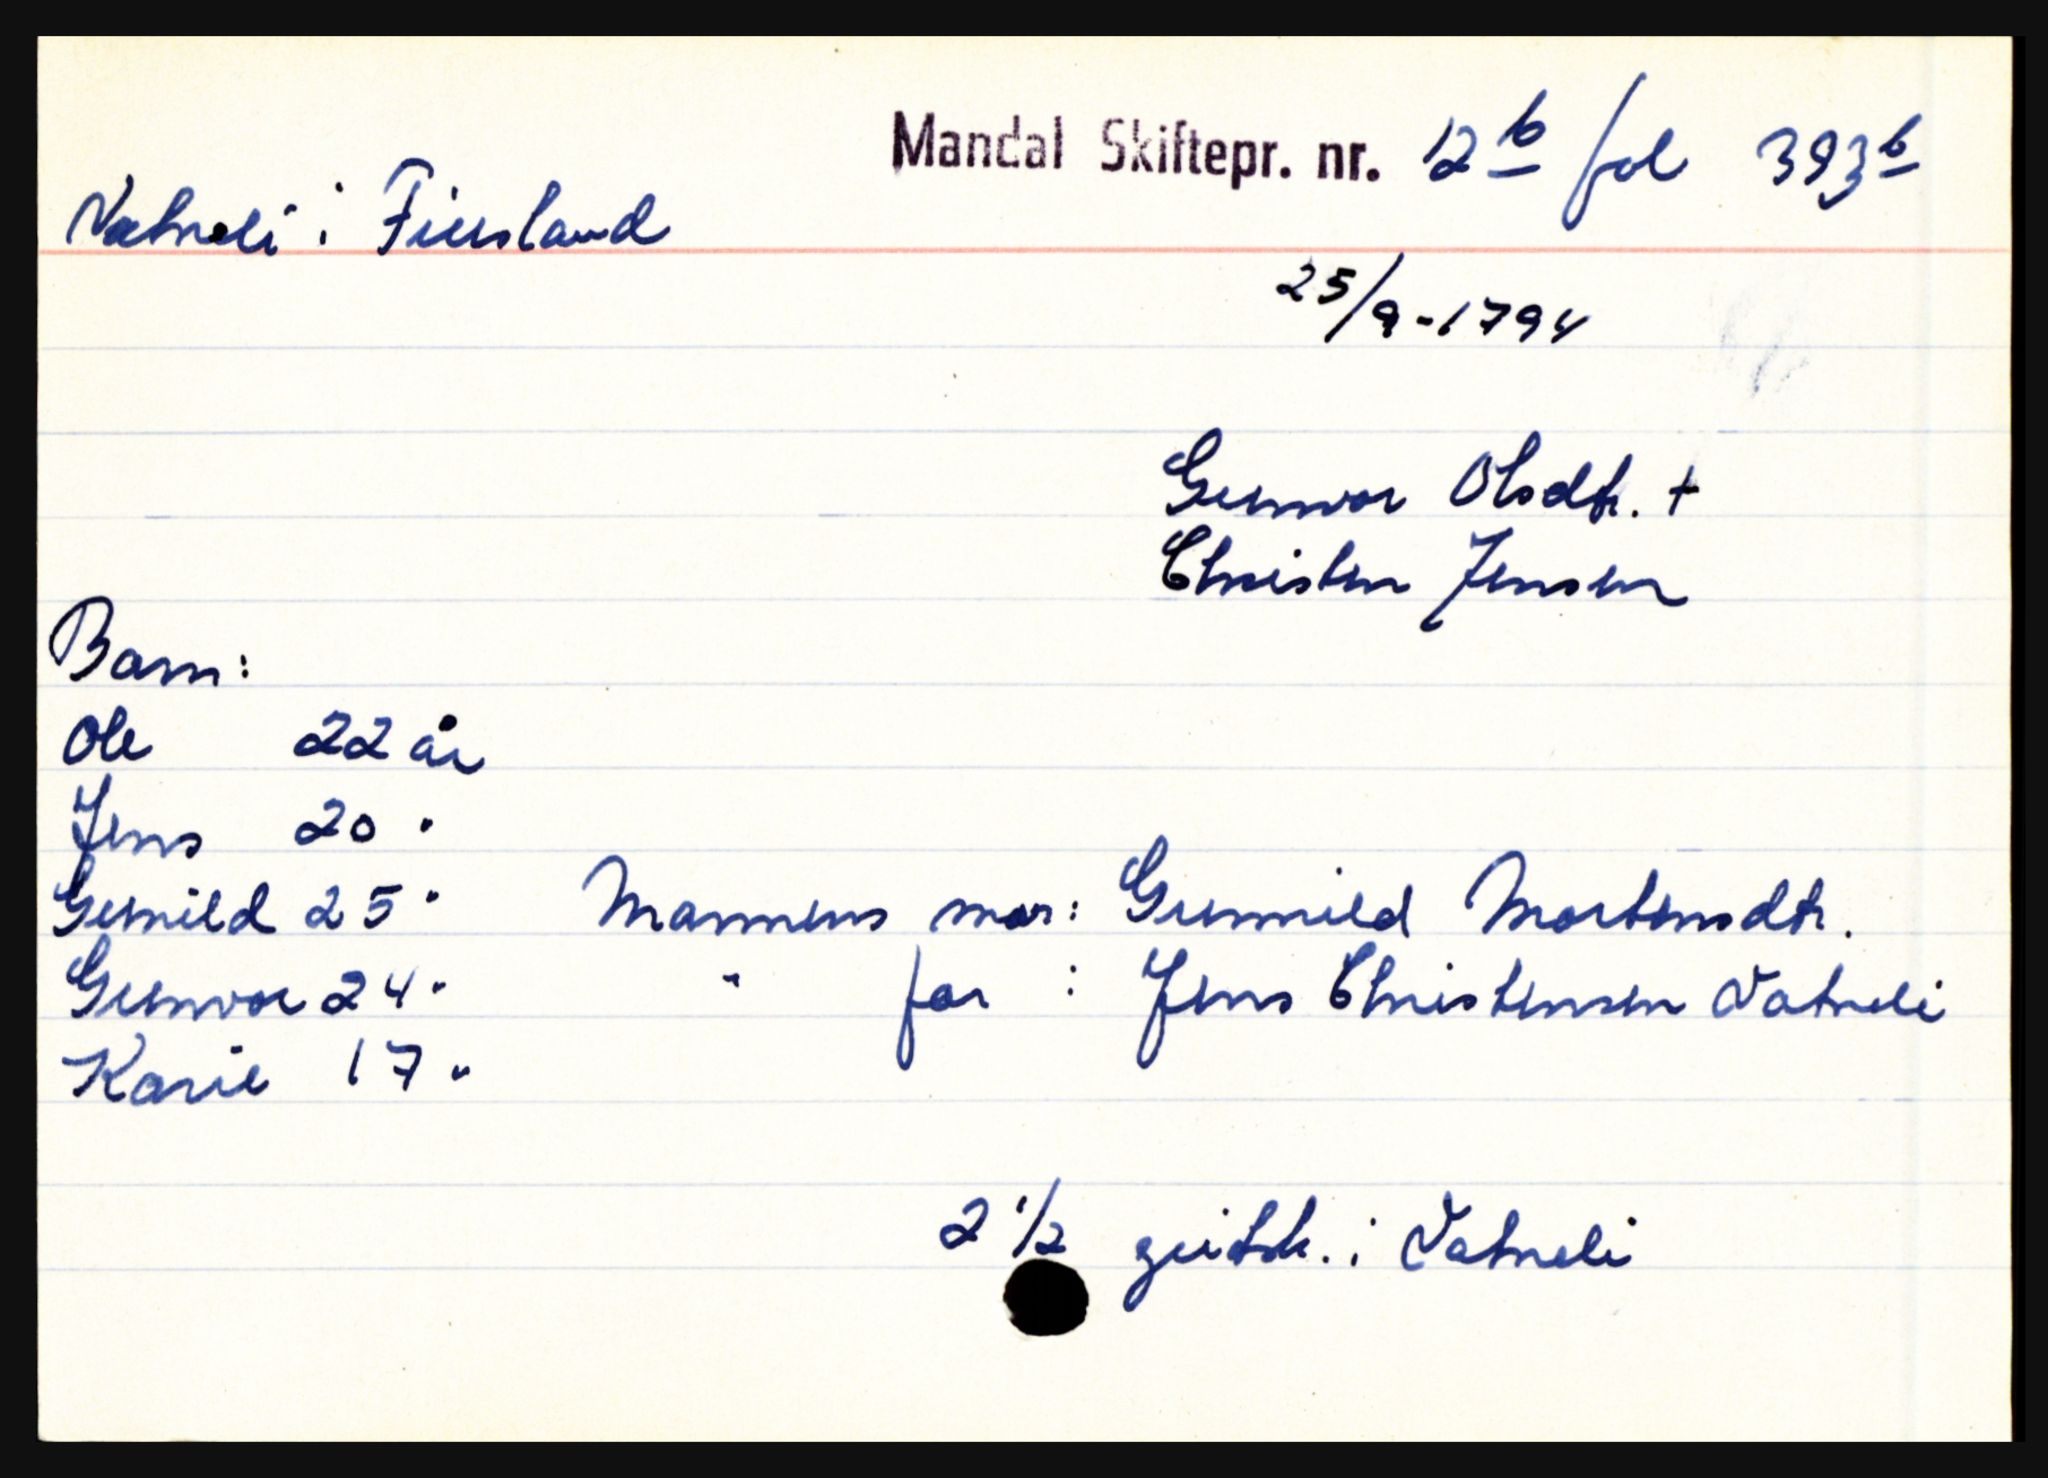 Mandal Skiftepr. nr. 12b fol 393b
Vatneli i Finsland
25/9-1794
Gunvor Olsdtr. +
Christen Jensen
Barn:
Ole 22 år
Jens 20 "
Gunild 25 " Mannens mor: Gunnild Mortensdtr.
Gunvor 24 " " far : Jens Christensen Vatneli
Karie 17 "
2 1/2 geitsk. i Vatneli